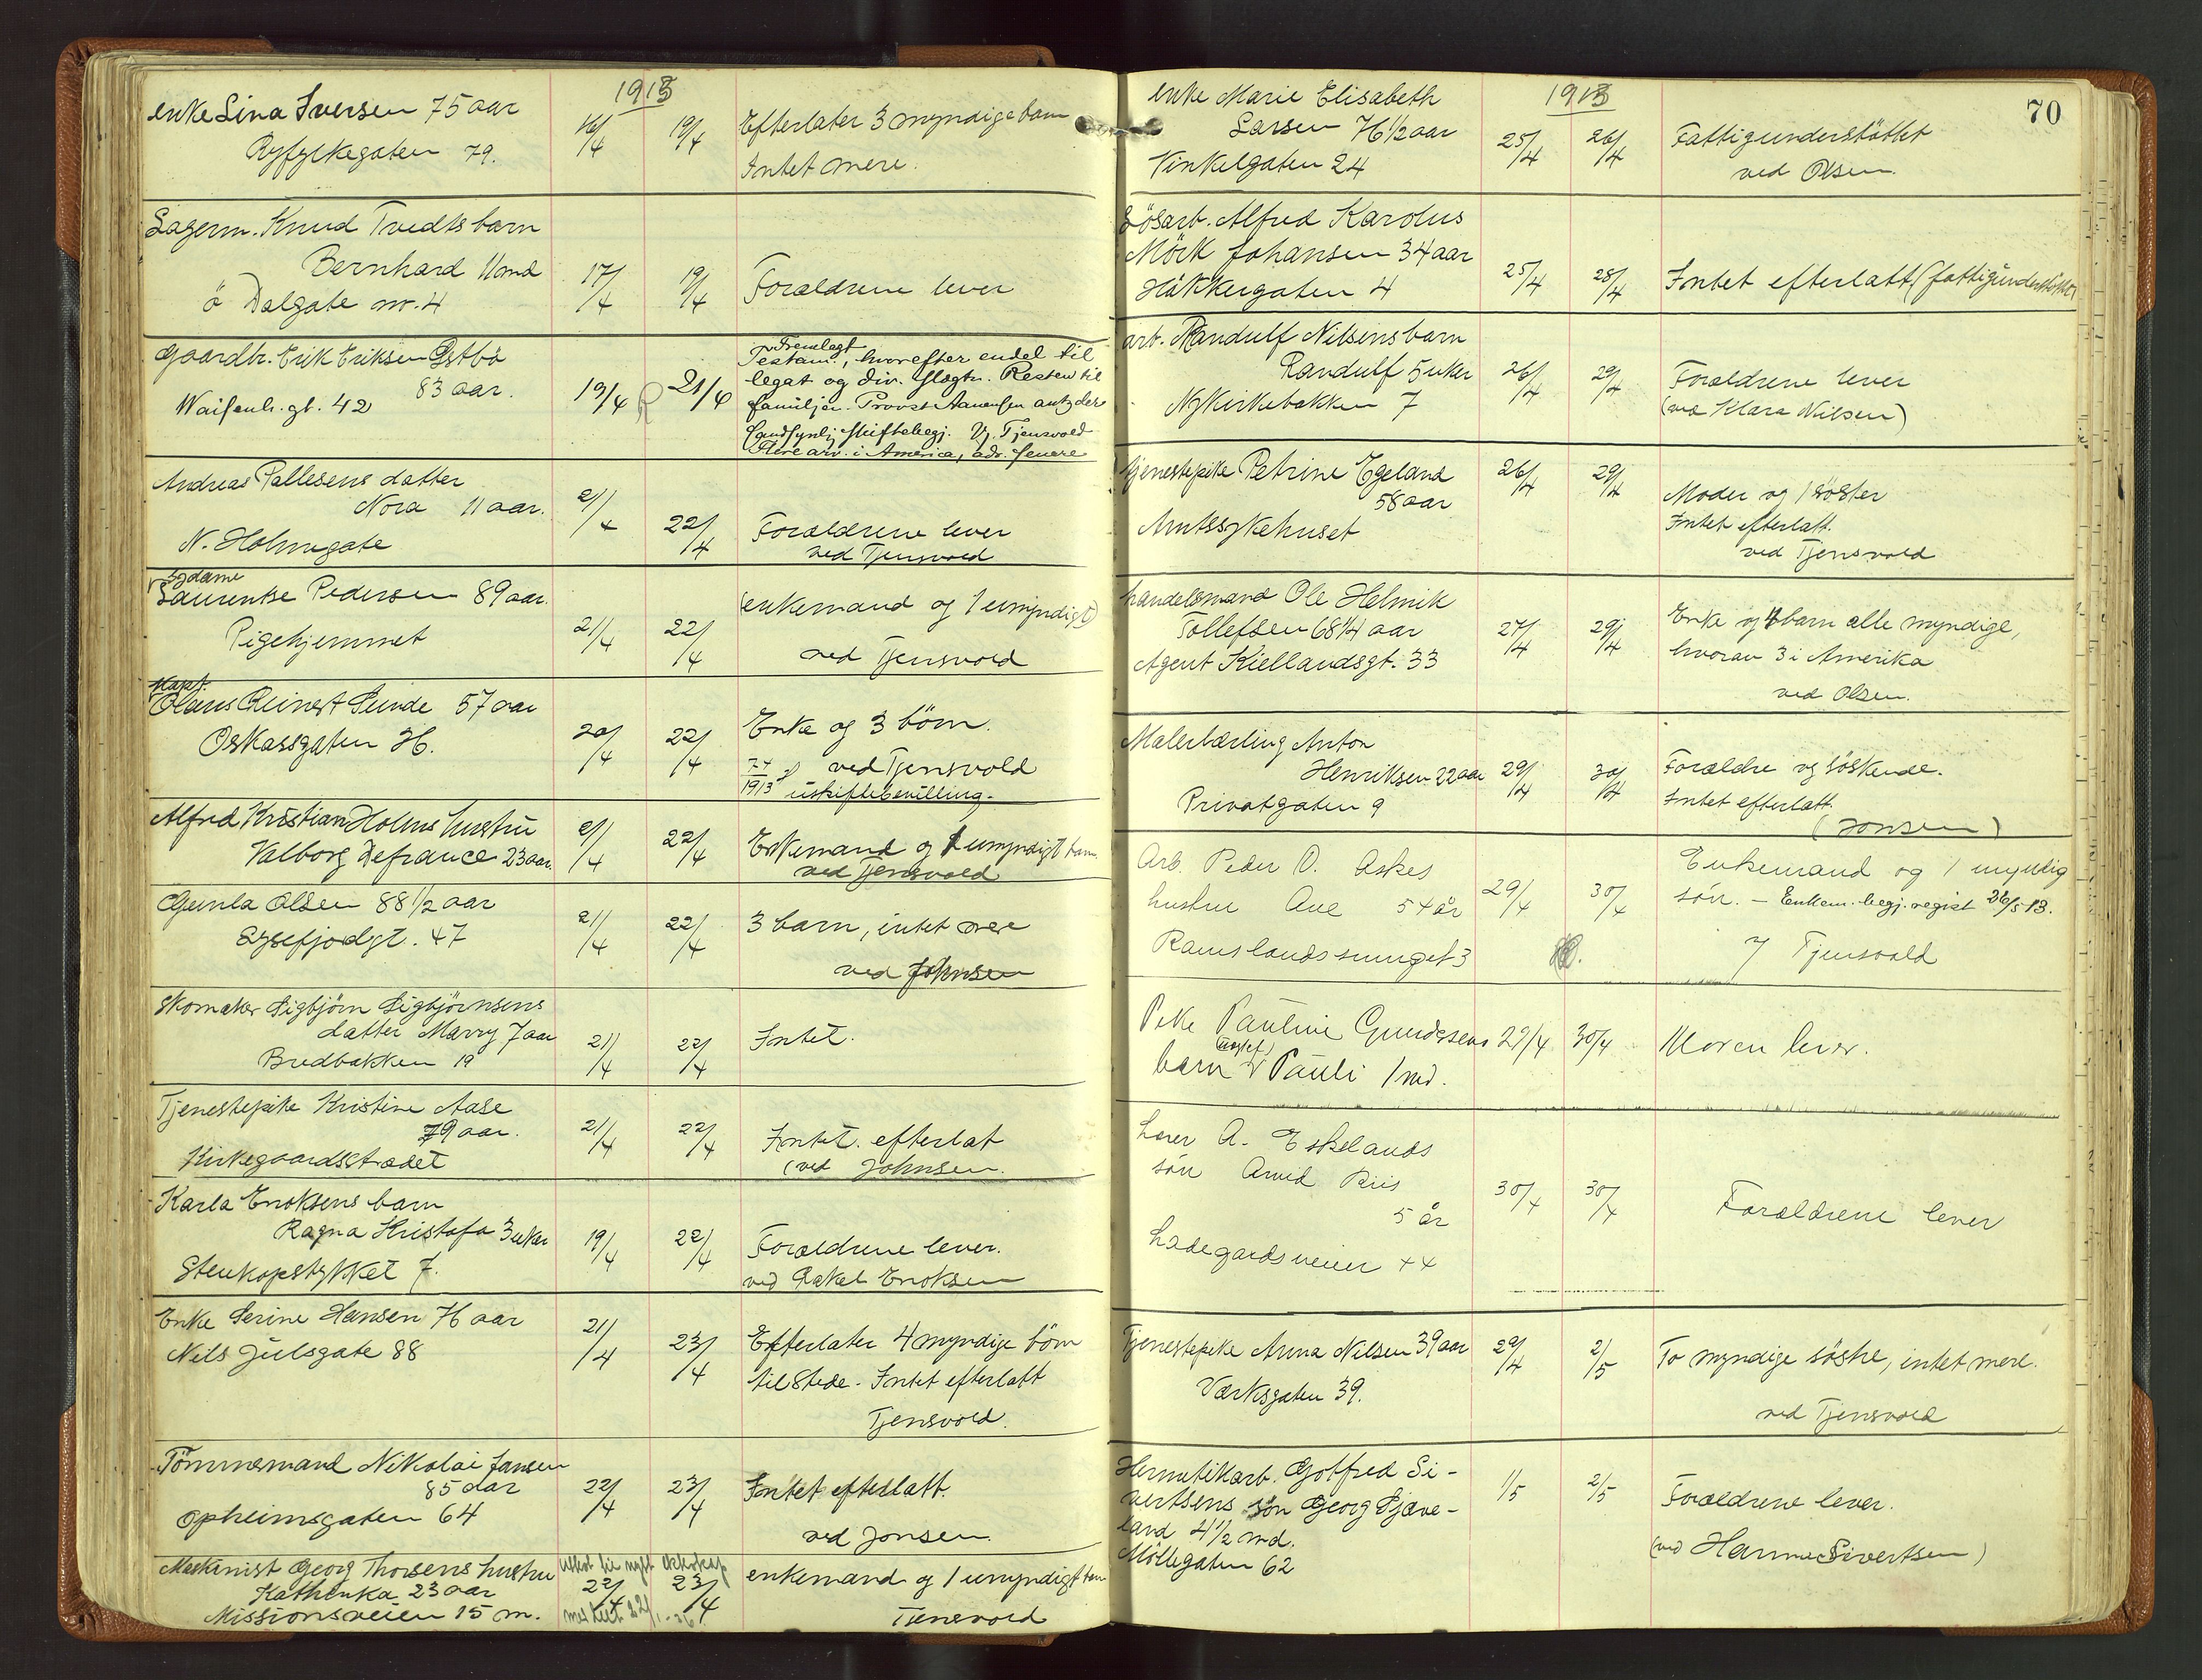 1913
enke Lina Iversen 75 aar
Ryfylkegaten 79.
16/4 19/4
Efterlater 3 myndige barn
Intet mere.
Lagerm. Knud Tvedts barn
Bernhard 11 md
ö Dalgate nr. 4
17/4 19/4
Forældrene lever
Gaardbr. Erik Eriksen Østbö
83 aar.
Waisenh. gt. 42
19/4 21/4
Fremlagt
Testam., hvorefter endel til
legat og div. slægtn. Resten til
familjen. Provst Aanensen
skiftebegj. V. Tjensvold
Flere arv. i America, adr. senere
Andreas Pallesens datter
Nora 11 aar.
N. Holmegate
21/4 22/4
Forældrene lever
ved Tjensvold
Sydame
Laurentse Pedersen 89 aar.
Pigehjemmet
21/4 22/4
(enkemand og 1 umyndigt)
ved Tjensvold
Kapt.
Olaus Reinert Sunde 57 aar
Oskarsgaten 26.
20/4 22/4
Enke og 3 börn.
ved Tjensvold
1913 uskiftebevilling.
Alfred Kristian Holms hustru
Valborg Defrance 23 aar.
21/4 22/4
Enkemand og 1 umyndigt barn.
ved Tjensvold
Gunla Olsen 88 1/2 aar
Lysefjordgt. 47
21/4 22/4
3 barn, intet mere
ved Johnsen
Skomaker Sigbjörn Sigbjörnsens
datter Marry 7 aar
Bredbakken 19
21/4 22/4
Intet.
Tjenestepike Kristine Aase
79 aar.
Kirkegaardsstrædet
21/4 22/4
Intet. efterlat
(ved Johnsen.
Karla Enoksens barn
Ragna Kristofa 3 uker
Stenkopstykket 7.
19/4 22/4
Forældrene lever.
ved Rakel Enoksen
Enke Serine Hansen 76 aar
Nils Julsgate 88
21/4 23/4
Efterlater 4 myndige börn
tilstede - Intet efterlatt
Tjensvold.
Tömmermand Nikolai Jansen
85 aar
Opheimsgaten 64
22/4 23/4
Intet efterlatt.
ved Jonsen.
Maskinist Georg Thorsens hustru
Kathinka 23 aar
Missionsveien 15 m.
22/4 23/4
enkemand og 1 umyndigt barn
Tjensvold
70
1913
enke Marie Elisabeth
Larsen 76 1/2 aar
Vinkelgaten 24
25/4 26/4
Fattigunderstöttet
ved Olsen.
Lösarb. Alfred Karolus
Mörk Johansen 34 aar
Häkkergaten 4
25/4 28/4
Intet efterlatt (fattigunderstöttet)
arb. Randulf Nilsens barn
Randulf 5 uker
Nykirkebakken 7
26/4 29/4
Forældrene lever
(ved Klara Nilsen)
tjenestepike Petrine Egeland
58 aar
Amtssykehuset
26/4 29/4
Moder og 1 söster
Intet efterlatt.
ved Tjensvold
handelsmand Ole Helmik
Tollefsen 68 1/4 aar
Agent Kiellandsgt. 33
27/4 29/4
Enke og 4 barn alle myndige,
hvorav 3 i Amerika
ved Olsen.
Malerlærling Anton
Henriksen 22 aar
Privatgaten 9
29/4 30/4
Forældre og söskende.
Intet efterlatt.
(Jonsen)
Arb. Peder O. Askes
hustru Ane 54 år
Ramslandssmuget 3
29/4 30/4
Enkemand og 1 myndig
sön. - Enkem. begj. regist 26/5 13.
V Tjensvold
Pike Pauline Gundersens
barn Pauli 1 md.
29/4 30/4
Moren lever.
Lærer A. Eskelands
sön Arvid Riis
5 år
Ladegardsveien 44
30/4 30/4
Forældrene lever
Tjenestepike Anna Nilsen 39 aar
Værksgaten 39.
29/4 2/5
To myndige söstre, intet mere.
ved Tjensvold
Hermetikarb. Gotfred Si-
vertsens sön Georg Gjæve-
land 4 1/2 md.
Möllegaten 62
1/5 2/5
Forældrene lever.
(ved Hanna Sivertsen)